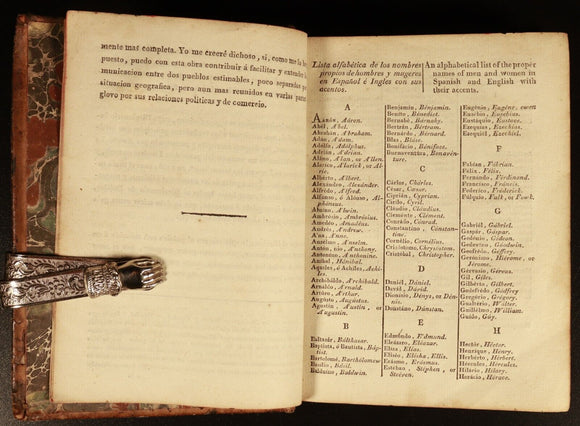 mente mas completa. Yo me creeré dichoso, si, como me lo
puesto, puedo con esta obra contribuir á facilitar y extender la
municacion entre dos pueblos estimables, poco separados
situacion geografica, pero aun mas reunidos en varias partes
globo por sus relaciones politicas y de comercio.
Lista alfabética de los nombres
propios de hombres y mugeres
en Español é Ingles con sus
acentos.
An alphabetical list of the proper
names of men and women in
Spanish and English with
their accents.
A
AARÓN, Aáron.
Abél, A'bel.
Abrahán, A'braham.
Adán, A'dam.
Adólfo, Adólphus.
Adrián, A'drian.
Aláno, A'lan, or A'llen.
Alaríco, A'larick, or Al-
ric.
Albérto, A'lbert.
Alexándro, Alexánder.
Alfrédo, A'lfred.
Alfónso, ó Alónso, Al-
phónsus.
Aluíno, A'lwin.
Ambrósio, Ambrósius.
Amadéo, Amadéus.
Andrés, Andrew.
A'na, Anne.
Ansélmo, A'nselm.
António, A'nthony.
A'ntonino, A'nthony.
Anibál, Hánibal.
Aquíles, ó Achíles, Achí-
lles.
Archibáldo, A'rchibald.
Arnáldo, A'rnold.
Artúro, A'rthur.
Augústo, Augústus.
Agustín, A'ustin, or
A'ugustin.
B
Baltazár, Bálthasar.
Baptísta, ó Bautísta, Báp-
tist.
Bartolomé, Barthólomew
Basílio, Básil.
Balduíno, Báldwin.
Benjamín, Bénjamin.
Beníto, Bénedict.
Bernabé, Bárnaby.
Bertrán, Bértram.
Bernárdo, Bérnard.
Blas, Blaise.
Bonifácio, Bóniface.
Buenaventúra, Bonaven-
ture.
C
Cárlos, Charles.
César, Cæsar.
Cipriáno, Cyprian.
Círilo, Cyril.
Cláudio, Cláudius.
Cleménte, Clément.
Conrádo, Cónrad.
Constantíno, Cónstan-
tine.
Cornélio, Cornélius.
Crisóstomo, Chrysóstom.
Cristóbal, Christopher.
D
Daniél, Dániel.
David, Dávid.
Dionísio, Dénys, or Dén-
nis.
Dunstáno, Dúnstan.
E
Edmúndo, E'dmond.
Eleázaro, Eleázar.
Elías, Elías.
Eliséo, Elísha, Ellis.
Erásmo, Erásmus.
Estéban, Stéphen, or
Stéeven.
Eugénio, Eugéne, owen
Eusébio, Eusébius.
Eustáquio, Eustace.
Ezequías, Ezechías.
Ezequiél, Ezéchiel.
F
Fabián, Fábian.
Félix, Félix.
Fernándo, Férdinand.
Francísco, Fráncis.
Federíco, Fréderick.
Fúlquio, Fulk, or Fowk.
G
Gabriél, Gábriel.
Gaspár, Gáspar.
Gedeón, Gídeon.
Godeón, Gédeon.
Geofrído, Géffrey.
Gerónimo, Hiérome, or
Jérome.
Gervásio, Gérvas.
Gil, Giles.
Gilbérto, Gílbert.
Godofrédo, Gódfrey
Gregório, Grégory.
Gualtério, Wálter.
Guillélmo, William.
Guído, Gúy.
H
Hectór, Héctor.
Henríque, Hénry.
Herbérto, Hérbert.
Hércules, Hércules.
Hilário, Hílary.
Horácio, Hórace.